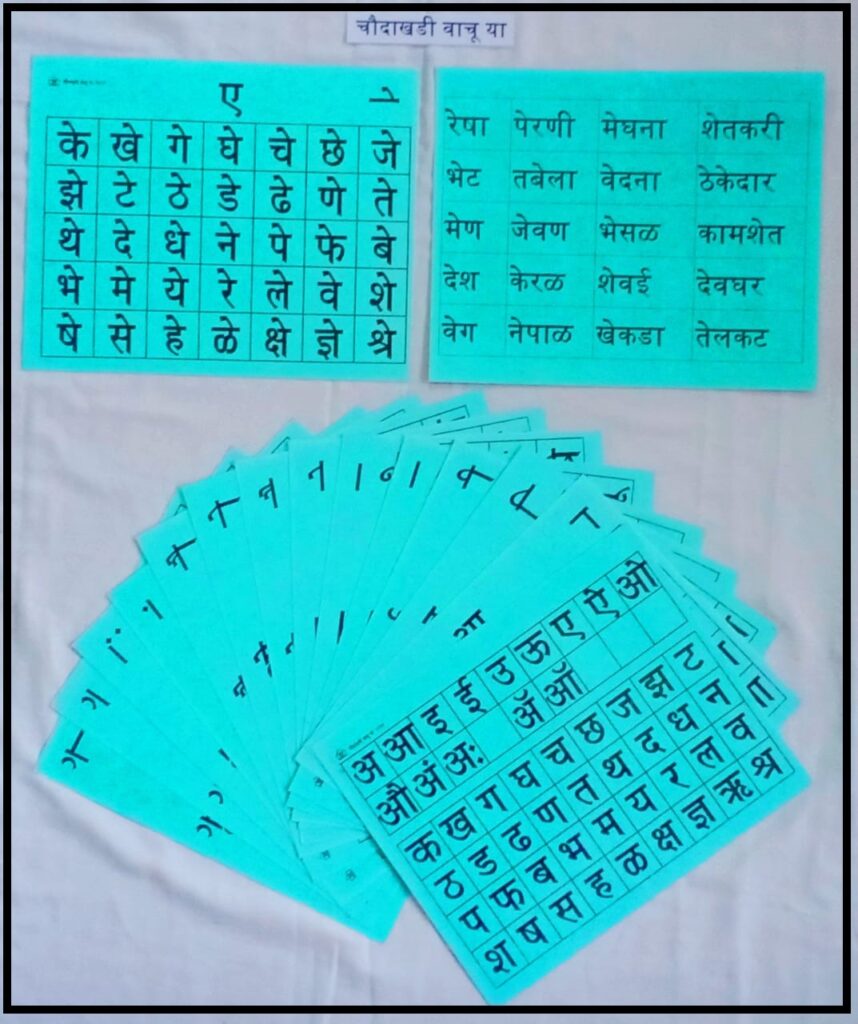 चौदाखडी वाचू या
ए े
के खे गे घे चे छे जे
झे टे ठे डे ढे णे ते
थे दे धे ने पे फे बे
भे मे ये रे ले वे शे
षे से हे ळे क्षे ज्ञे श्रे
रेषा पेरणी मेघना शेतकरी
भेट तबेला वेदना ठेकेदार
मेण जेवण भेसळ कामशेत
देश केरळ शेवई देवघर
वेग नेपाळ खेकडा तेलकट
अ आ इ ई उ ऊ ए ऐ ओ
औ अं अः ॲ ऑ
क ख ग घ च छ ज झ ट
ठ ड ढ ण त थ द ध न
प फ ब भ म य र ल व
श ष स ह ळ क्ष ज्ञ ऋ श्र